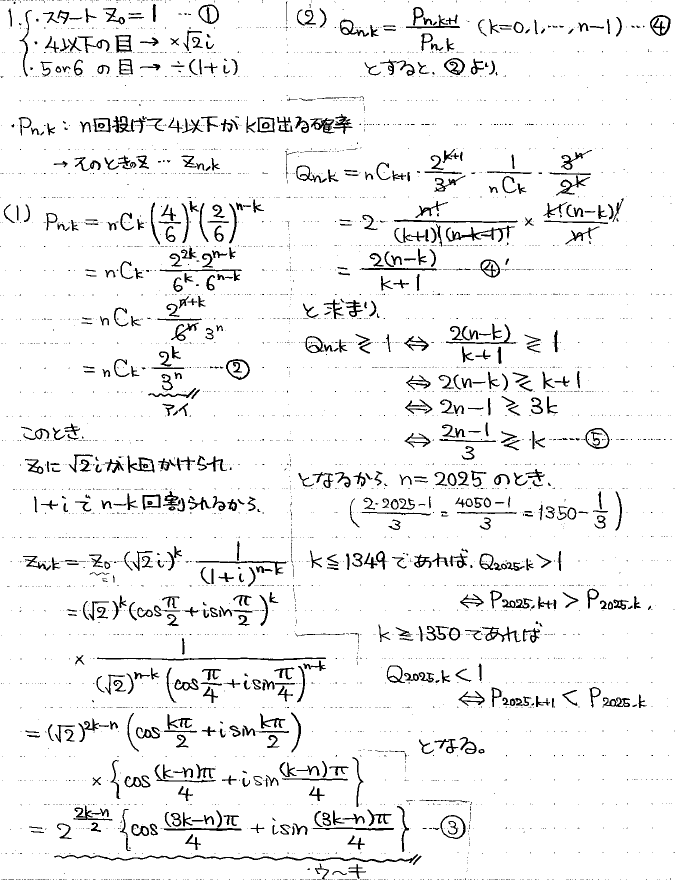 1. ・スタート Z₀=1 …①
・4以下の目 → ×√2i
・5or6 の目 → ÷(1+i)
・Pn,k : n回投げて4以下がk回出る確率
→ そのときのZ … Zn,k
(1) Pn,k = nCk (4/6)^k (2/6)^(n-k)
= nCk · (2^(2k)·2^(n-k))/(6^k·6^(n-k))
= nCk · 2^(n+k)/6^n 3^n
= nCk · 2^k/3^n …②
アイ
このとき、
Z₀に√2iがk回かけられ、
1+iでn-k回割られるから、
Zn,k = Z₀ · (√2i)^k · 1/(1+i)^(n-k)
=1
= (√2)^k (cos π/2 + i sin π/2)^k
× 1/((√2)^(n-k) (cos π/4 + i sin π/4)^(n-k))
= (√2)^(2k-n) (cos kπ/2 + i sin kπ/2)
× {cos (k-n)π/4 + i sin (k-n)π/4}
= 2^((2k-n)/2) {cos (3k-n)π/4 + i sin (3k-n)π/4} …③
ウ〜キ
(2) Qn,k = Pn,k+1/Pn,k (k=0,1,…,n-1) …④
とすると、②より、
Qn,k = nCk+1 · 2^(k+1)/3^n · 1/nCk · 3^n/2^k
= 2 · n!/((k+1)!(n-k-1)!) × k!(n-k)!/n!
= 2(n-k)/(k+1) ④'
と求まり、
Qn,k ≷ 1 ⇔ 2(n-k)/(k+1) ≷ 1
⇔ 2(n-k) ≷ k+1
⇔ 2n-1 ≷ 3k
⇔ (2n-1)/3 ≷ k …⑤
となるから、n=2025 のとき、
((2·2025-1)/3 = (4050-1)/3 = 1350 - 1/3)
k≦1349であれば、Q2025,k > 1
⇔ P2025,k+1 > P2025,k、
k≧1350であれば
Q2025,k < 1
⇔ P2025,k+1 < P2025,k
となる。